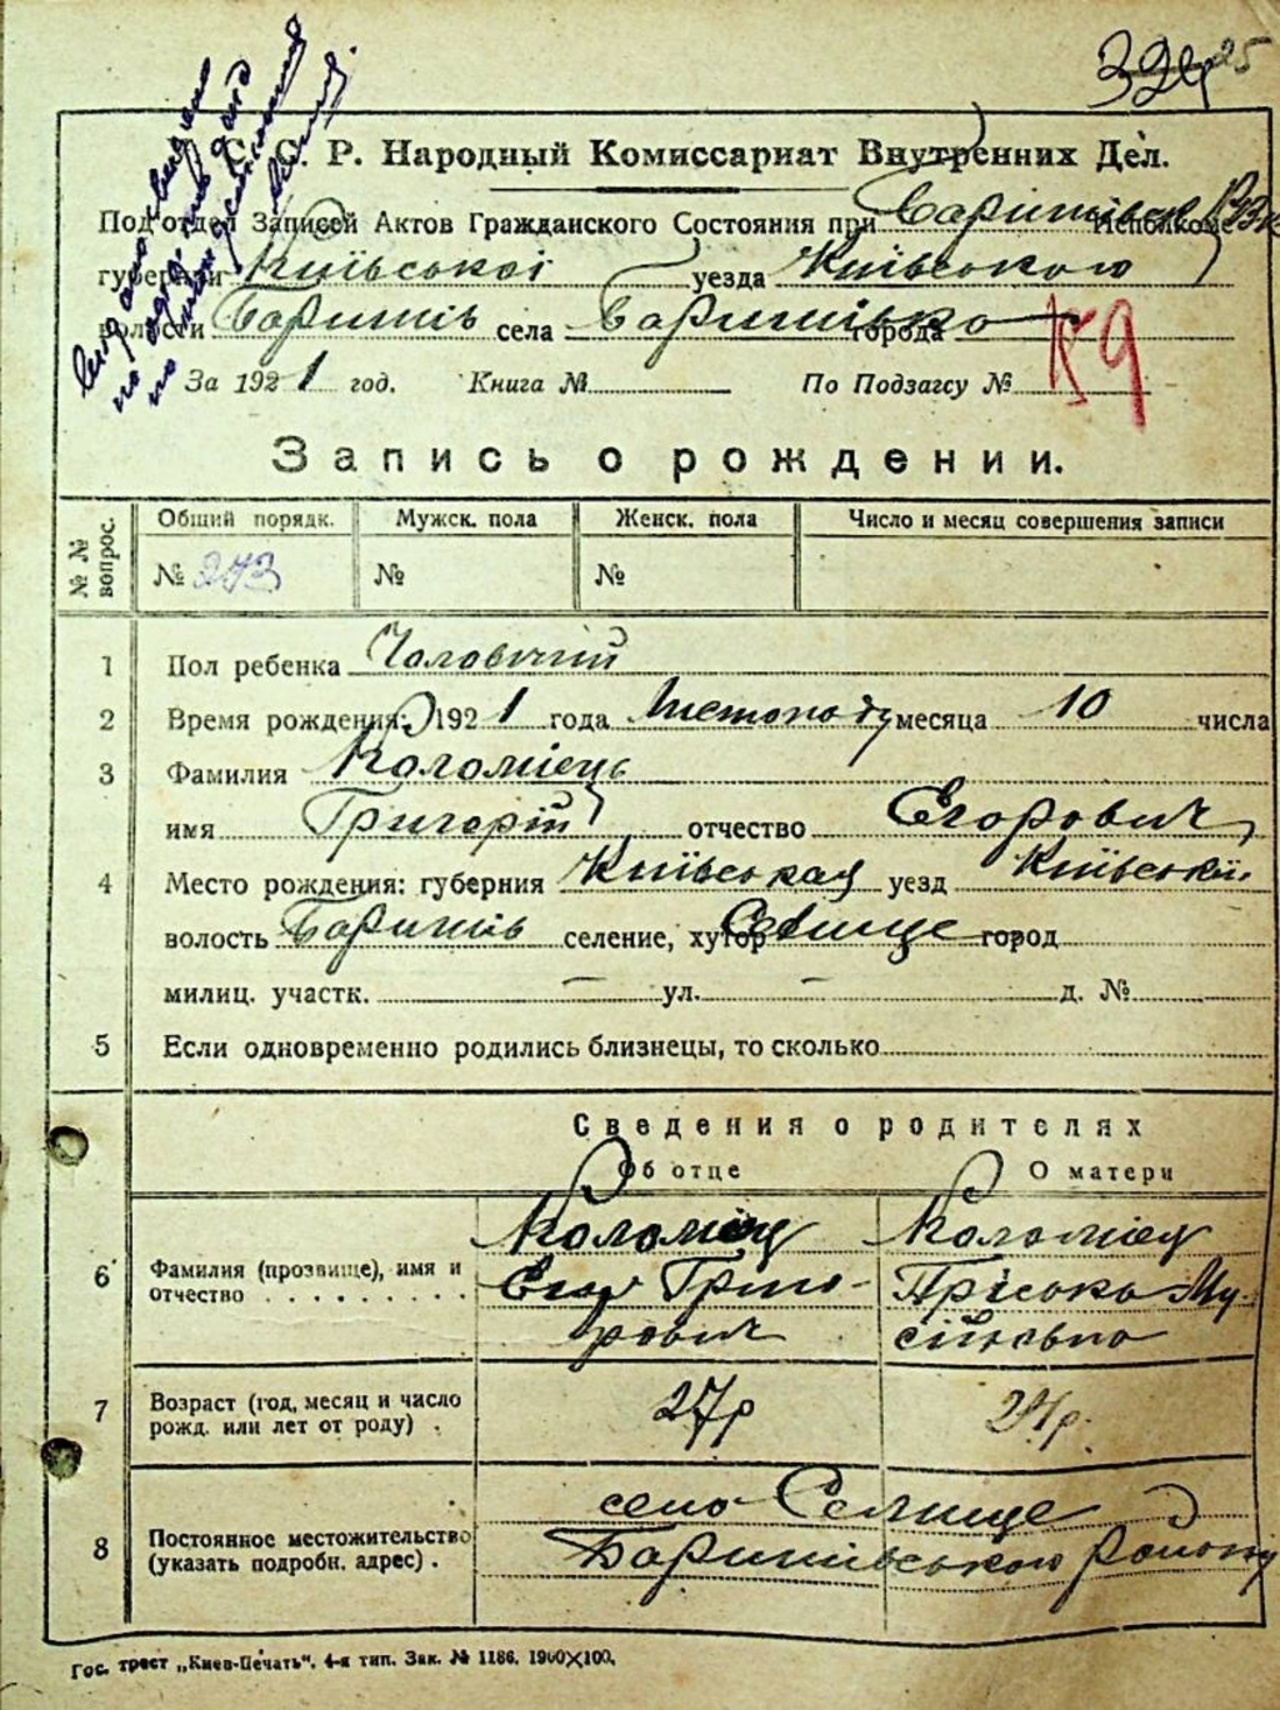 С. С. Р. Народный Комиссариат Внутренних Дел.
Под'отдел Записей Актов Гражданского Состояния при Исполкоме
губернии Київської уезда Київського
волости Баришів села города
За 1921 год. Книга № По Подзагсу №
Запись о рождении.
№№ вопрос. Общий порядк. Мужск. пола Женск. пола Число и месяц совершения записи
№ 273 № №
1 Пол ребенка Чоловічий
2 Время рождения: 1921 года Листопаду месяца 10 числа
3 Фамилия Коломієць
имя Григорій отчество Егорович
4 Место рождения: губерния Київськая уезд Київський
волость Баришів селение, хутор Селище город
милиц. участк. — ул. — д. №
5 Если одновременно родились близнецы, то сколько
Сведения о родителях
Об отце О матери
Коломієц Коломієц
6 Фамилия (прозвище), имя и Егор Григо- Пріська Му-
отчество . . . . . . . . . рович сіївська
7 Возраст (год, месяц и число 27р 24р.
рожд. или лет от роду) .
село Селище
8 Постоянное местожительство Баришівського Району
(указать подробн. адрес) .
Гос. трест „Киев-Печать". 4-я тип. Зак. № 1186. 1900×100.